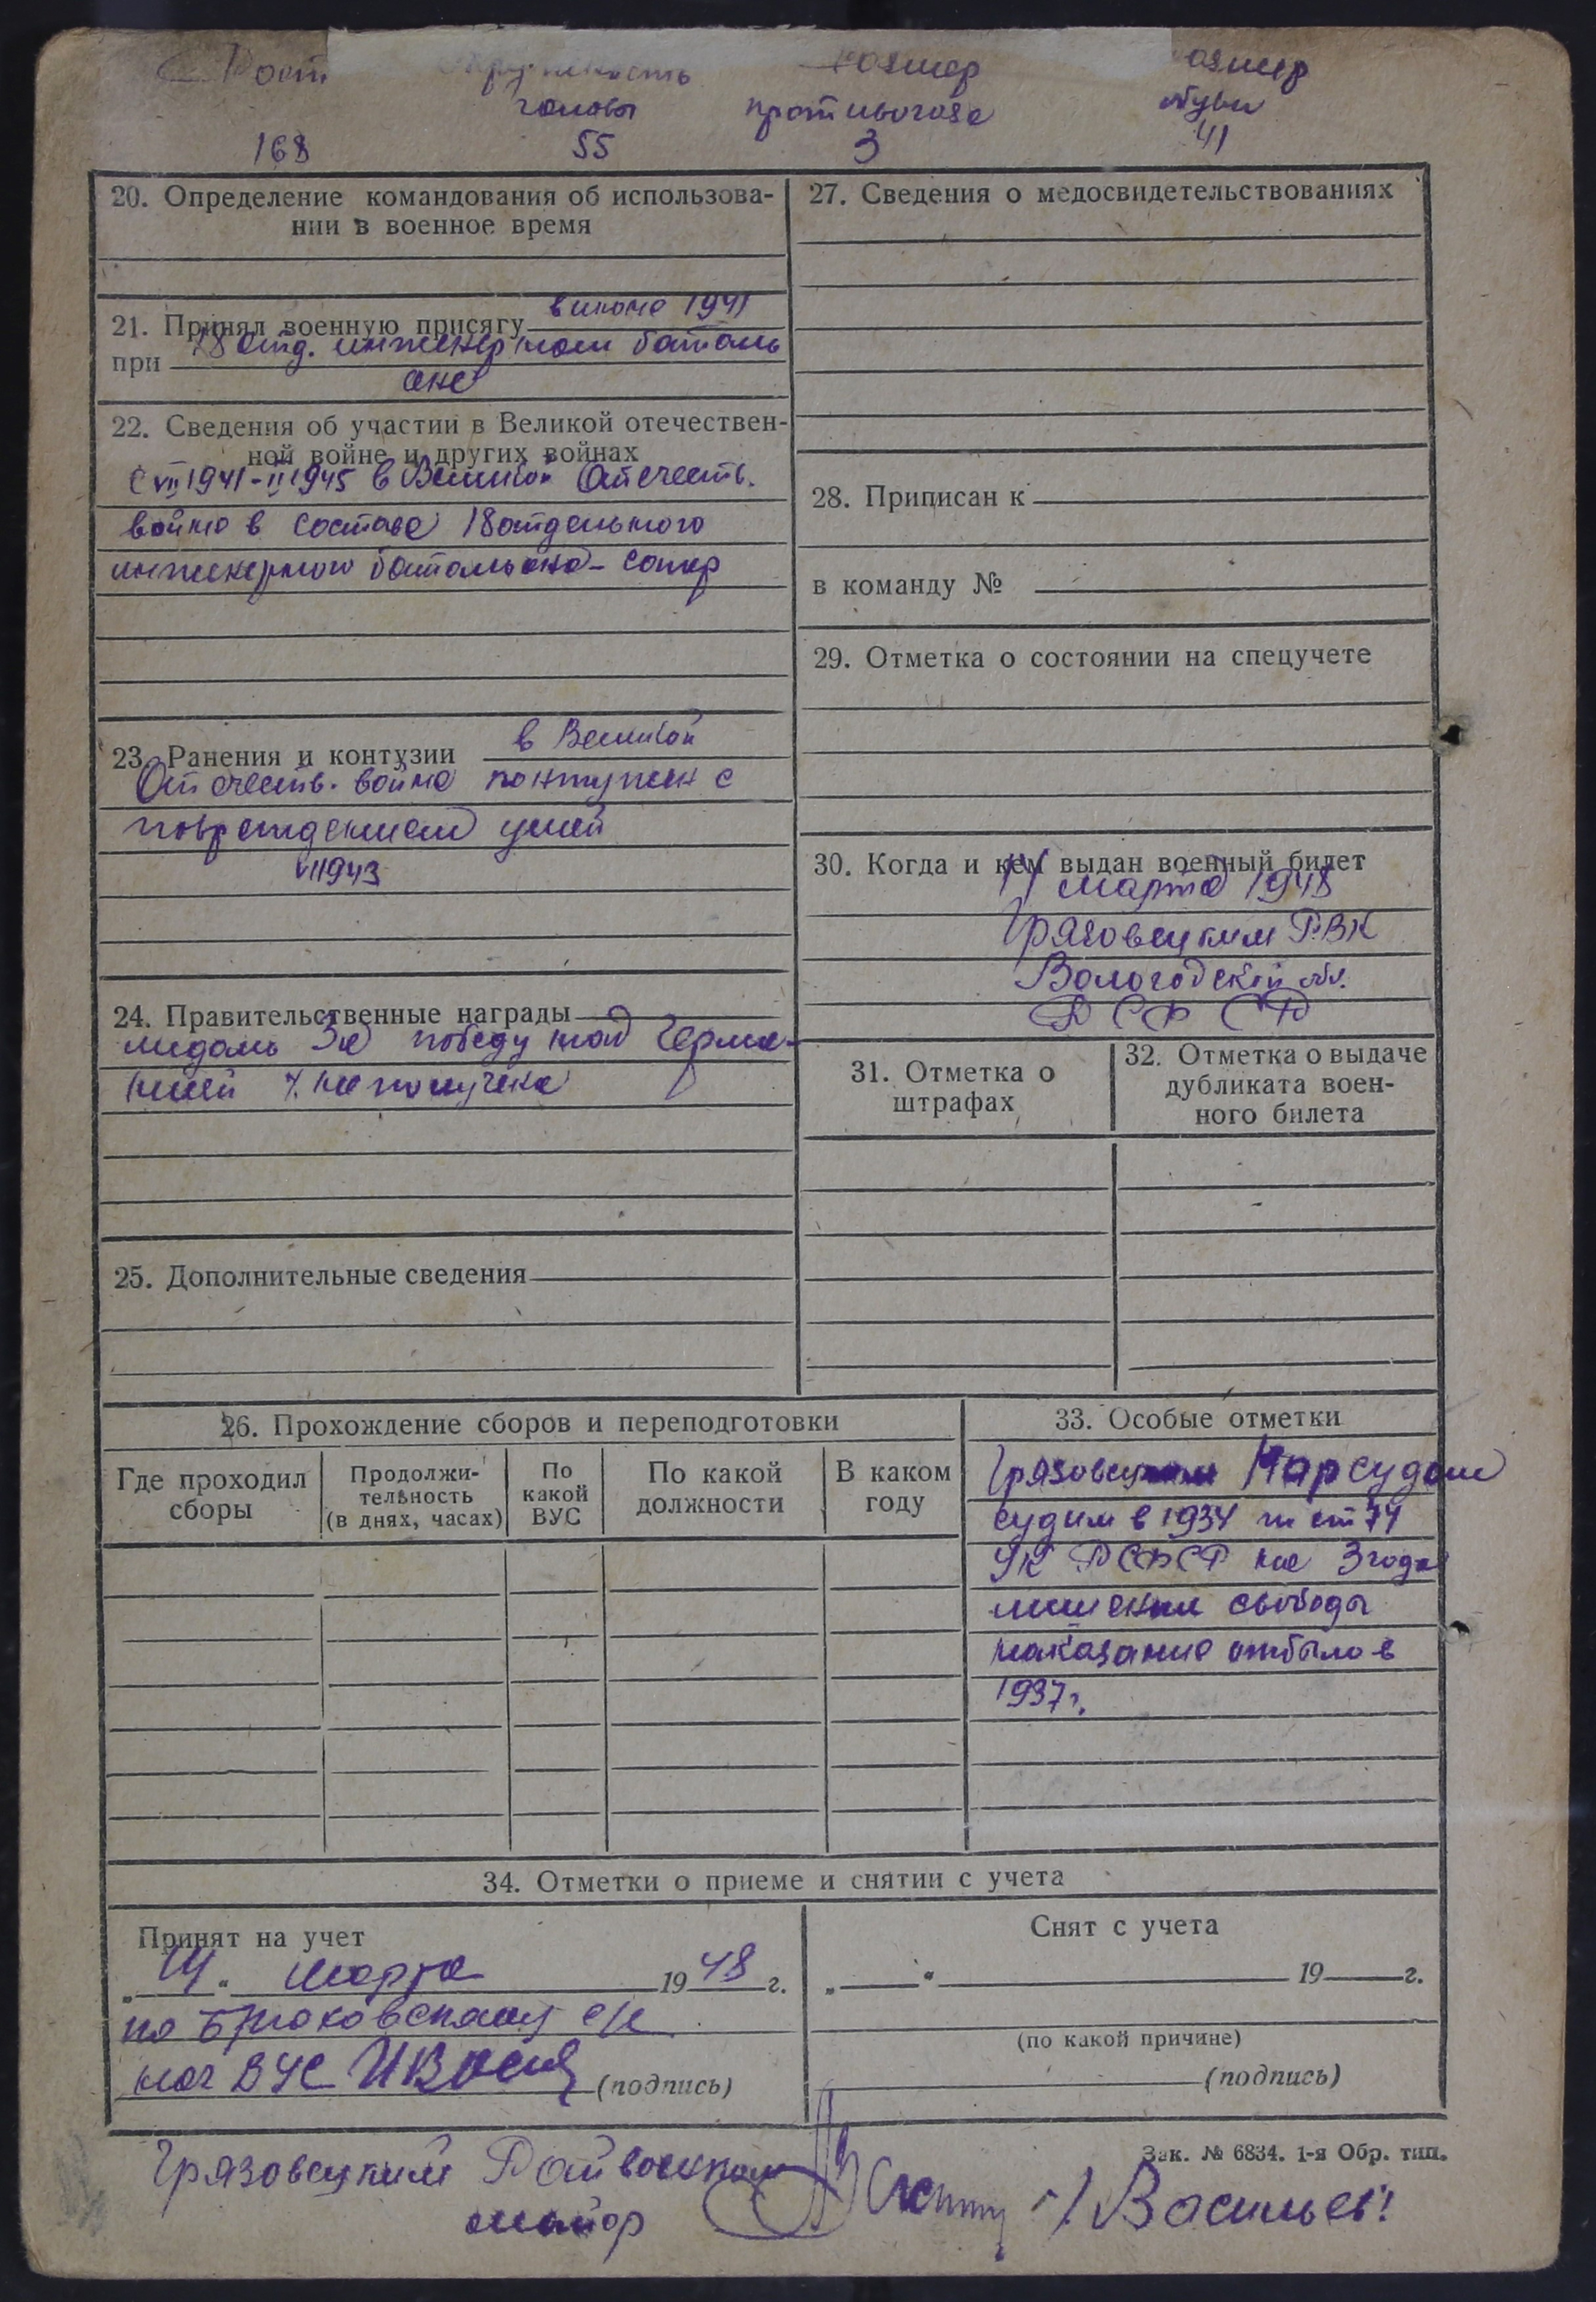 Рост окружность размер размер
головы противогаза обуви
168 55 3 41
20. Определение командования об использова-
нии в военное время
21. Принял военную присягу в июле 1941
при 18 отд. инженерном баталь
оне
22. Сведения об участии в Великой отечествен-
ной войне и других войнах
с VII 1941 - II 1945 в Великой Отечеств.
войне в составе 18 отдельного
инженерного батальона - сапер
23. Ранения и контузии в Великой
Отечеств. войне контужен с
повреждением ушей
VII 1943
24. Правительственные награды
медаль За победу над Герма-
нией не получена
25. Дополнительные сведения
27. Сведения о медосвидетельствованиях
28. Приписан к
в команду №
29. Отметка о состоянии на спецучете
30. Когда и кем выдан военный билет
14 марта 1948
Грязовецким РВК
Вологодской обл.
РСФСР
31. Отметка о
штрафах
32. Отметка о выдаче
дубликата воен-
ного билета
26. Прохождение сборов и переподготовки
Где проходил
сборы
Продолжи-
тельность
(в днях, часах)
По
какой
ВУС
По какой
должности
В каком
году
33. Особые отметки
Грязовецким Нарсудом
судим в 1934 по ст 74
УК РСФСР на 3 года
лишения свободы
наказание отбыл в
1937 г.
34. Отметки о приеме и снятии с учета
Принят на учет
„14“ марта 1948 г.
по с/с
нач ВУС (подпись)
Снят с учета
„ “ 19 г.
(по какой причине)
(подпись)
Зак. № 6834. 1-я Обр. тип.
Грязовецкий Райвоенком
майор /Васильев/